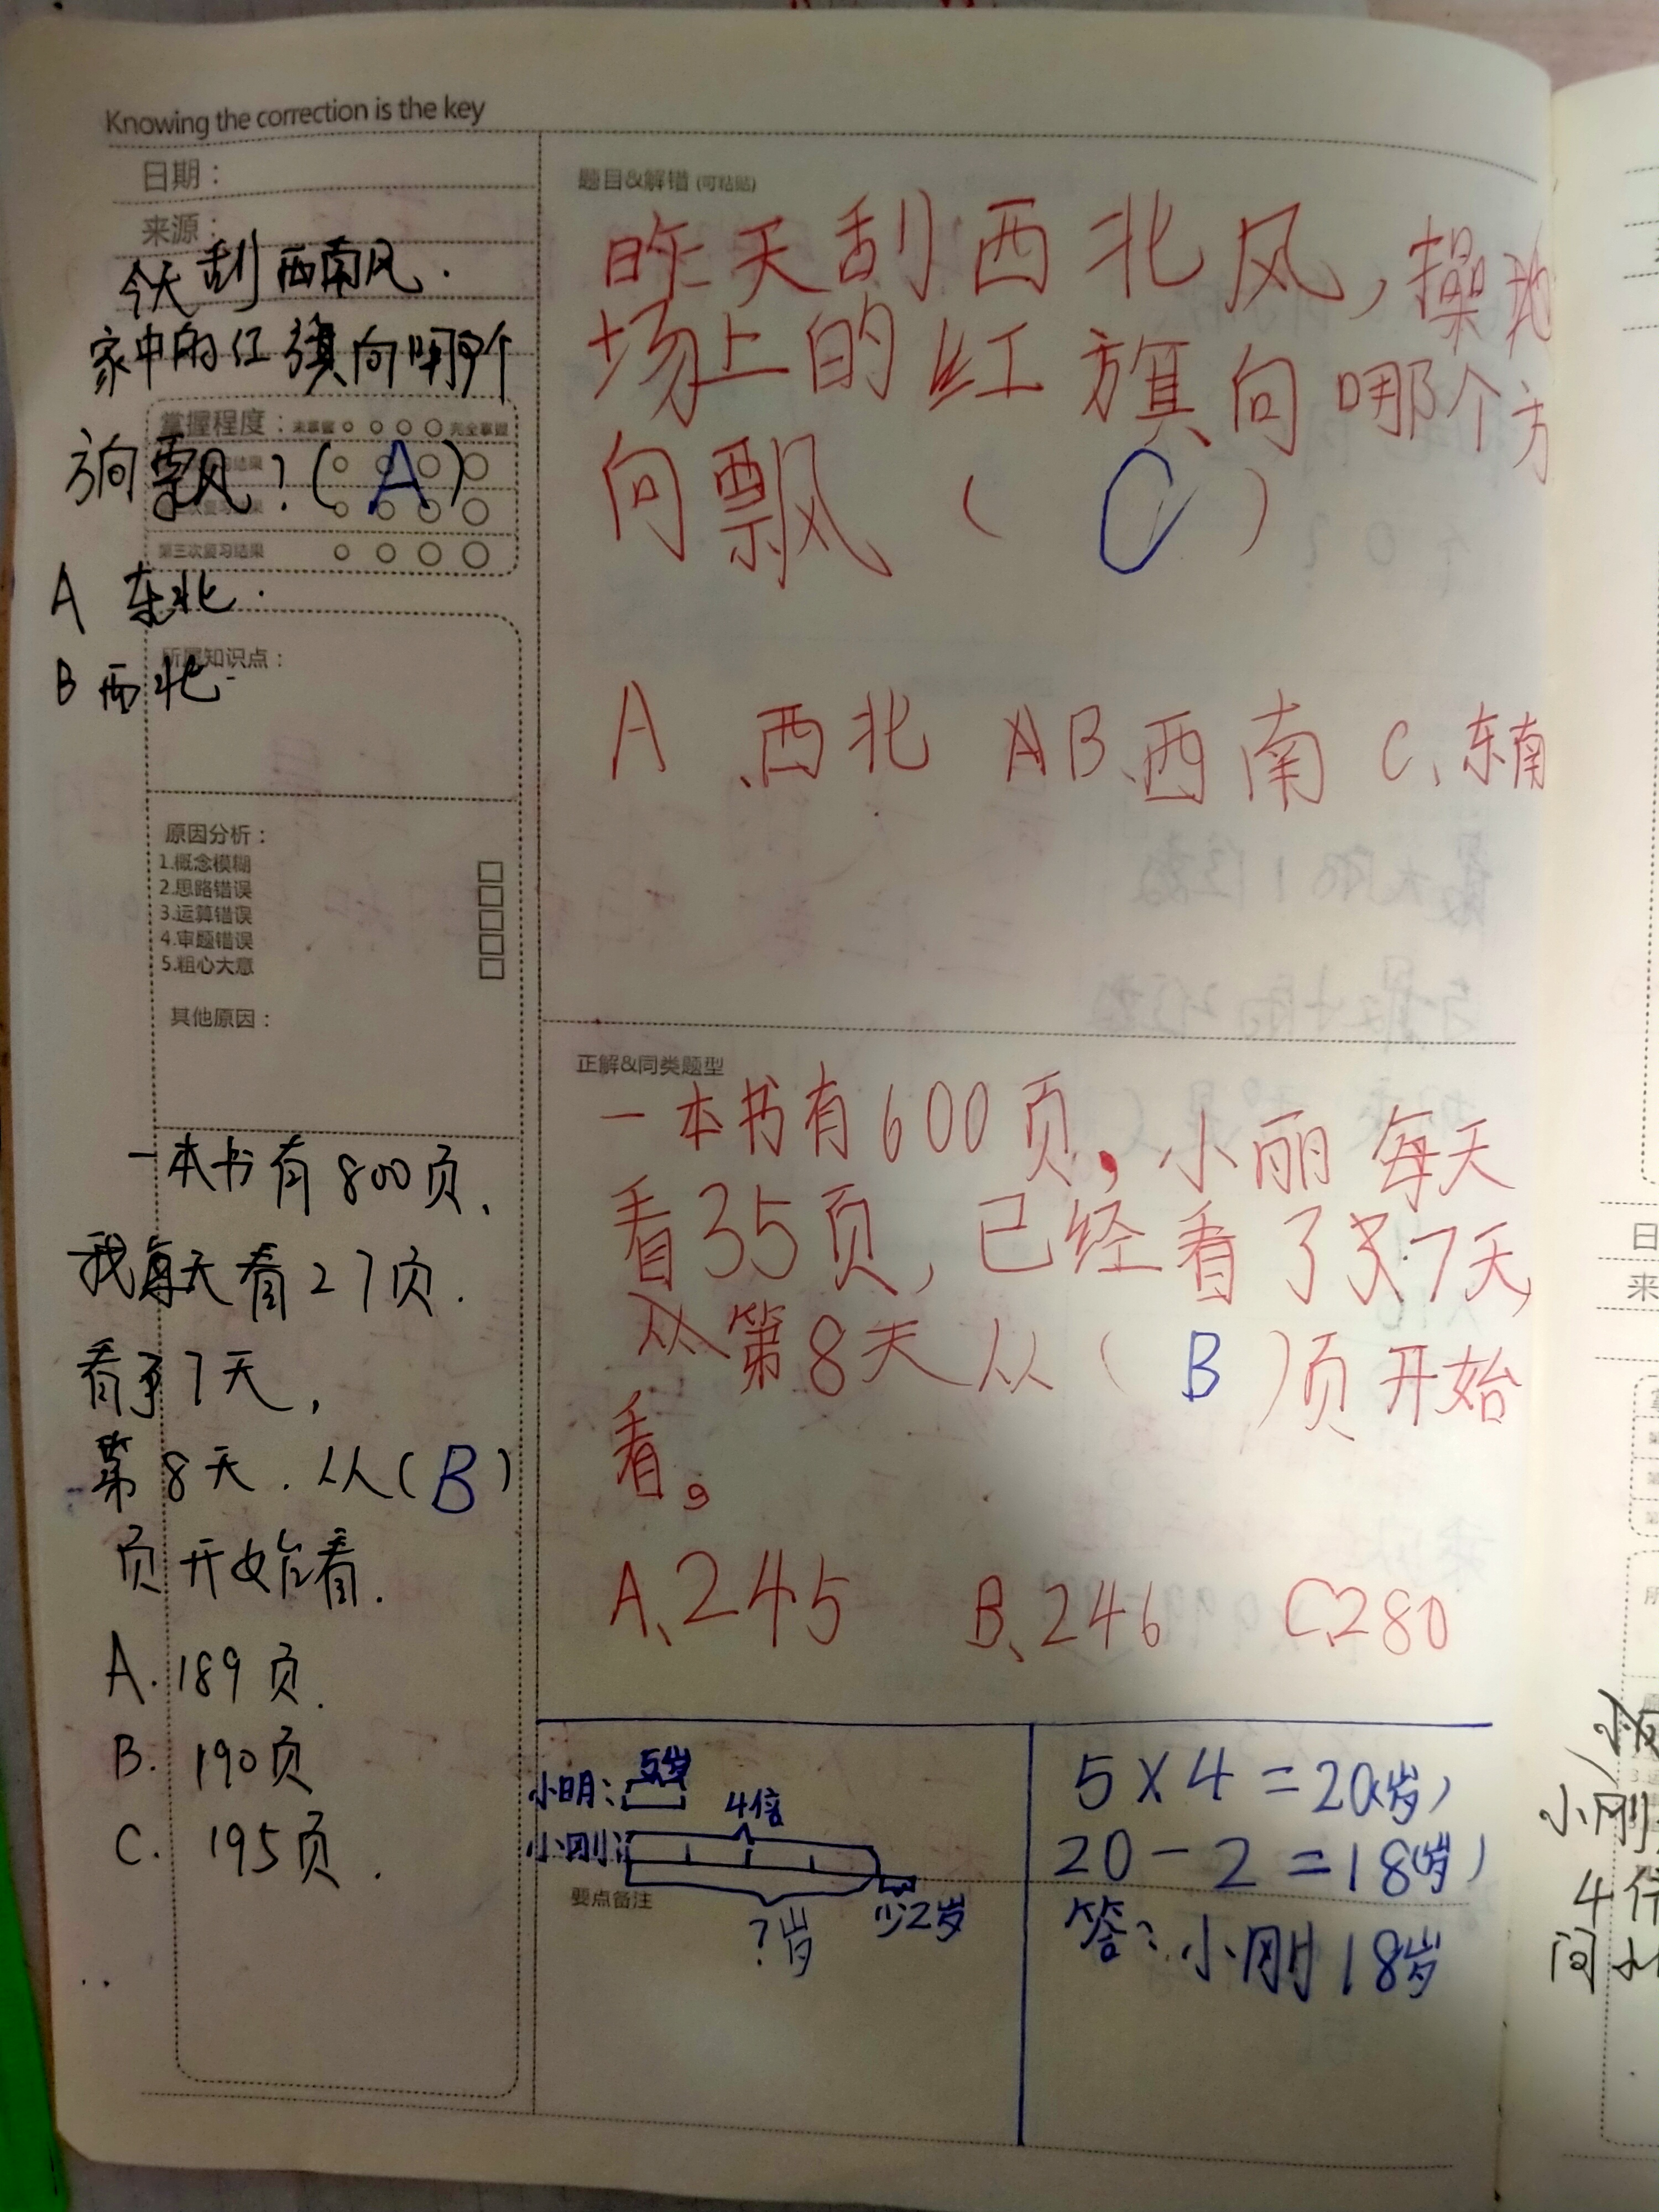 Knowing the correction is the key
日期：
来源：
今天刮西南风.
家中的红旗向哪个
方向飘?(A)
掌握程度：未掌握 完全掌握
第三次复习结果
A 东北.
B 西北
所属知识点：
原因分析：
1.概念模糊
2.思路错误
3.运算错误
4.审题错误
5.粗心大意
其他原因：
一本书有800页、
我每天看27页.
看了7天,
第8天.从(B)
页开始看.
A. 189页.
B. 190页
C. 195页.
题目&解错 (可粘贴)
昨天刮西北风,操
场上的红旗向哪个方
向飘(C)
A、西北 B、西南 C、东南
正解&同类题型
一本书有600页,小丽每天
看35页,已经看了7天,
从第8天从(B)页开始
看。
A、245 B、246 C、280
小明: 5岁
4倍
小刚:
少2岁
?岁
要点备注
5×4=20(岁)
20-2=18(岁)
答:小刚18岁
日
来
小刚
4倍
间